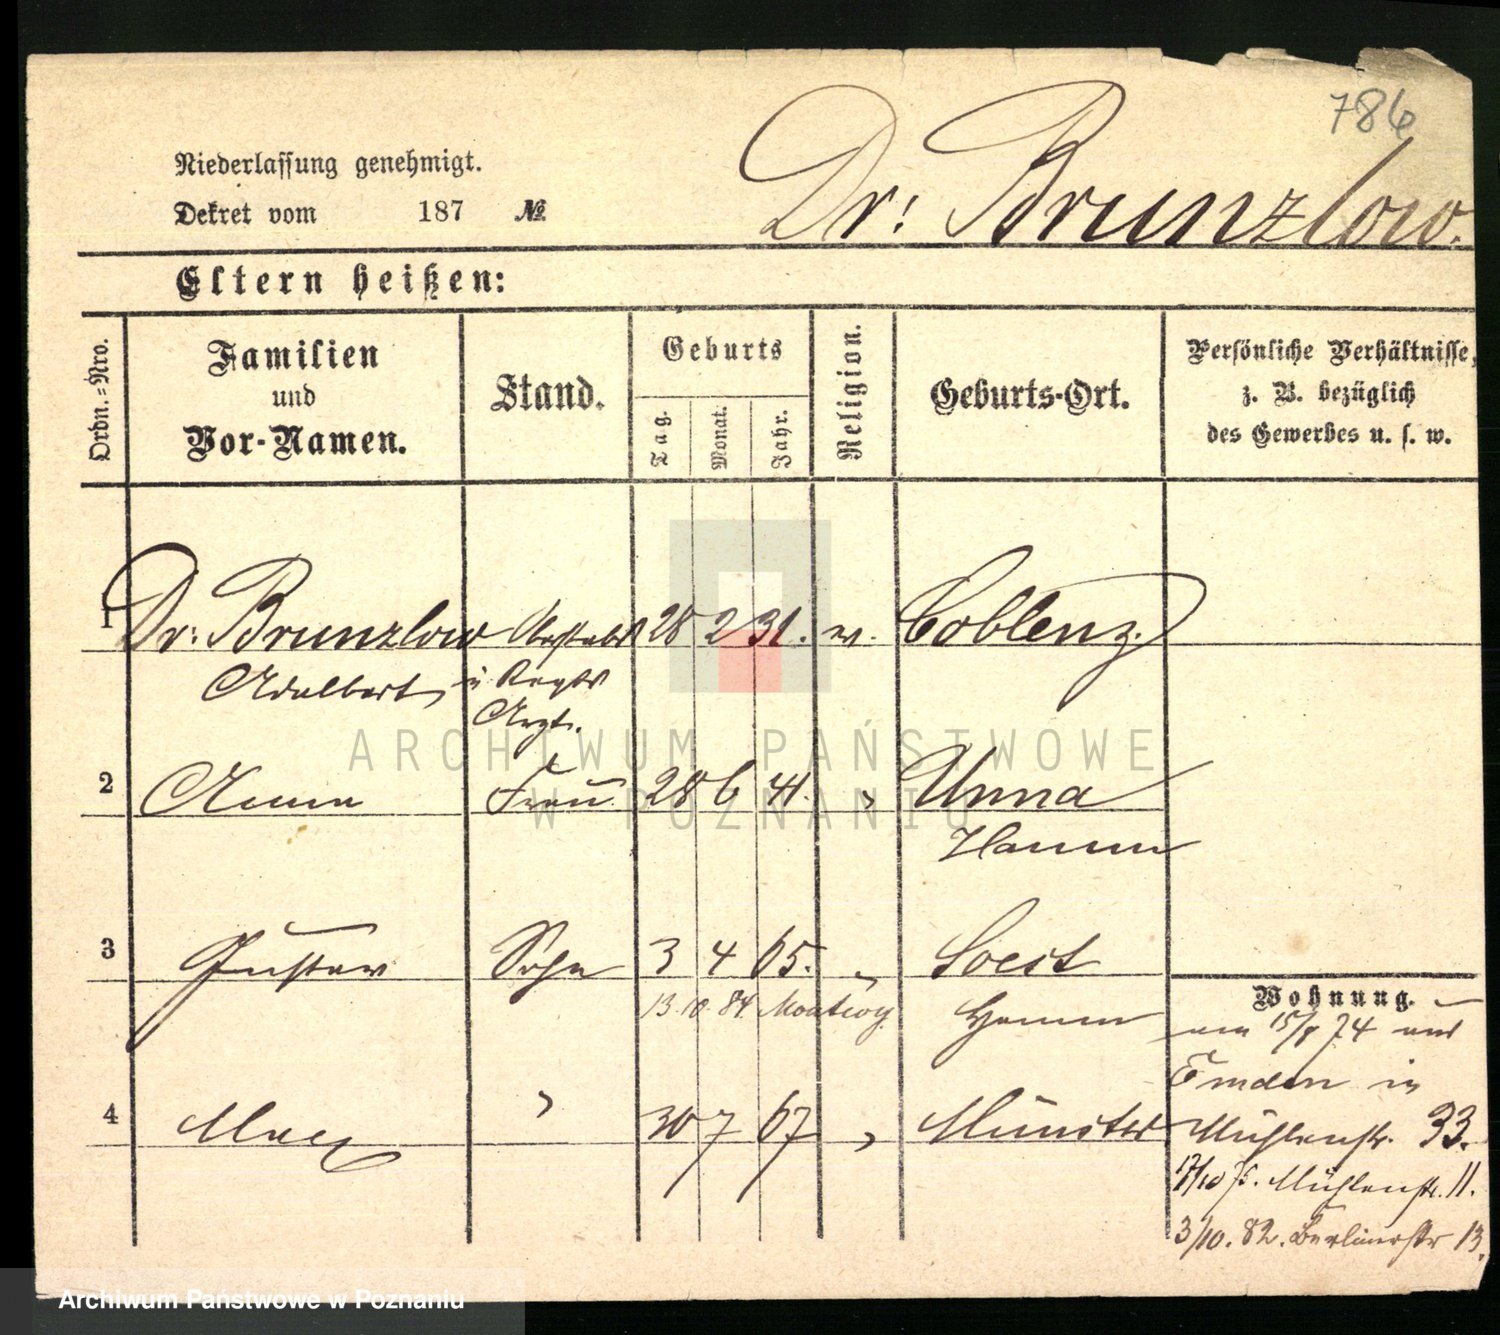 786
Niederlassung genehmigt.
Dekret vom 187 №
Dr: Brunzlow.
Eltern heißen:
Ordn.-Nro.
Familien
und
Vor-Namen.
Stand.
Geburts
Tag.
Monat.
Jahr.
Religion.
Geburts-Ort.
Persönliche Verhältnisse,
z. B. bezüglich
des Gewerbes u. s. w.
1 Dr: Brunzlow 28 2 31. ev. Coblenz.
Adalbert u. Regts
Arzt.
2 Anna Frau 28 6 41. " Unna
Hamm
3 Gustav Sohn 3 4 65. " Soest
13. 10. 84 Hamm
Wohnung.
am 15/8 74 aus
Emden in
4 Max " 30 7 67 " Münster Mühlenstr. 33.
17/10 75. Mühlenstr. 11.
3/10. 82. Berlinerstr 13.
ARCHIWUM PAŃSTWOWE
W POZNANIU
Archiwum Państwowe w Poznaniu